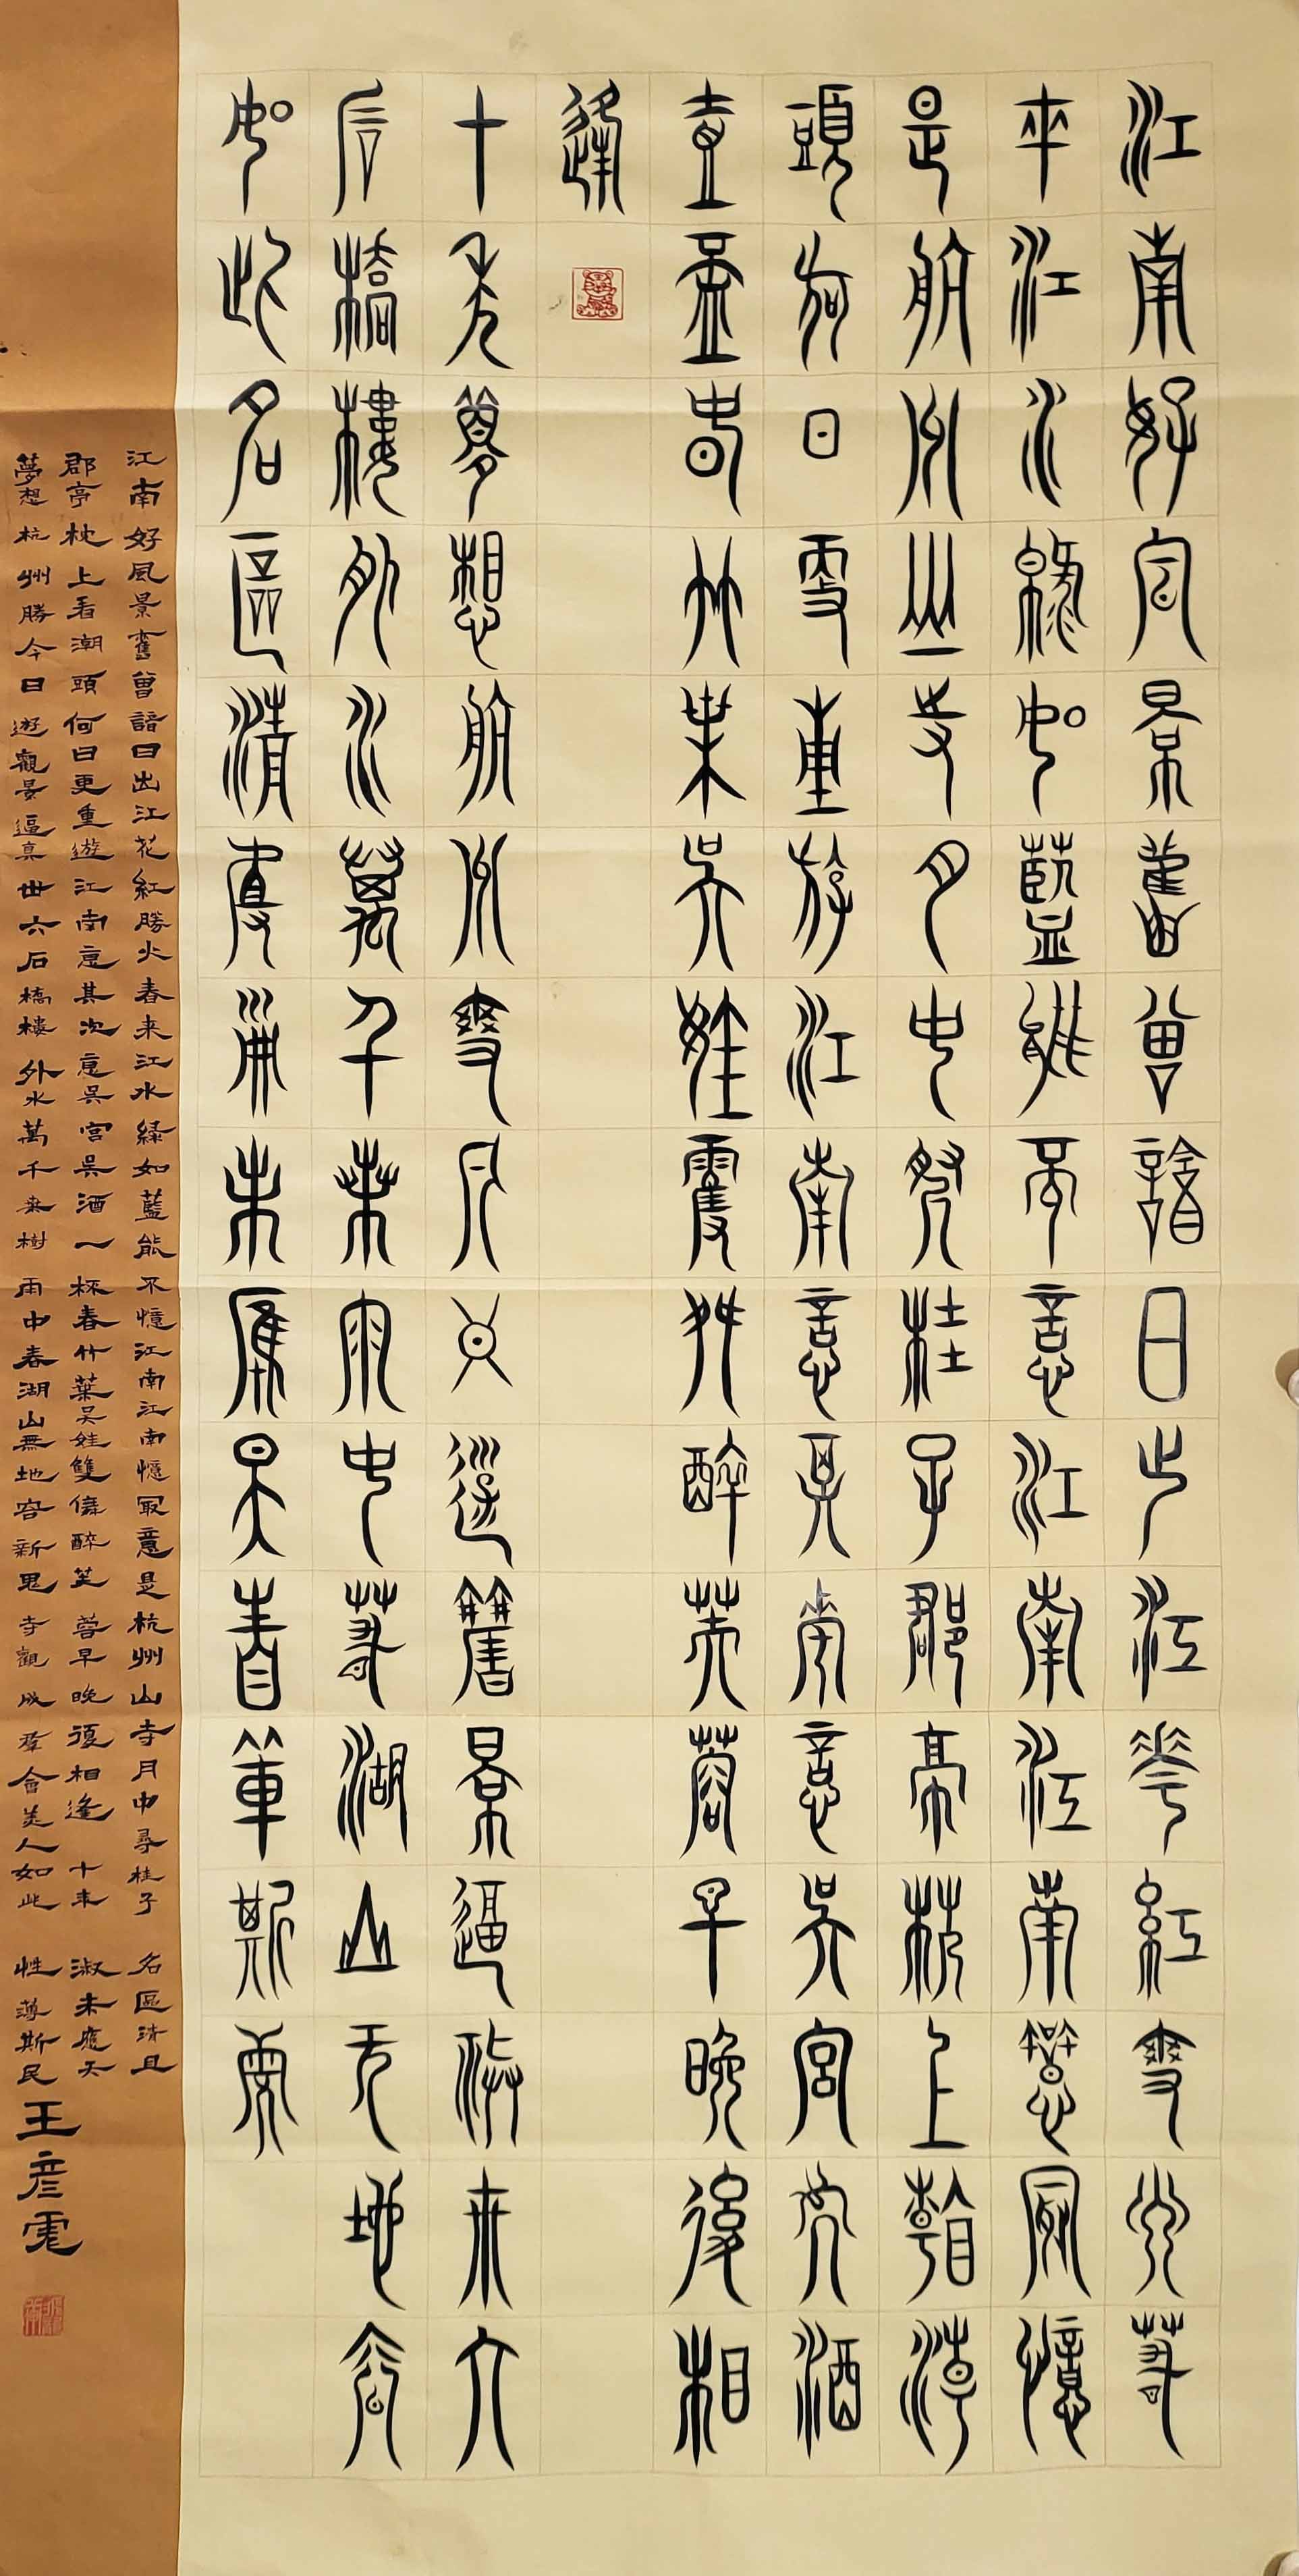 江南好風景舊曾諳日出江花紅勝火春
來江水綠如藍能不意江南江南憶最憶
是杭州山寺月中尋桂子郡亭枕上看潮
頭何日更重游江南意其次意吳宮吳酒
壹盃春竹葉吳娃雙舞醉芙蓉早晚復相
逢
十年夢想杭州勝今日遊觀景逼真卅六
石橋樓外水萬千葉雨中春湖山无地容
如此名區清且淑未應天性薄斯民
江南好風景舊曾諳日出江花紅勝火春来江水緑如藍能不憶江南江南憶最意是杭州山寺月中尋桂子
郡亭枕上看潮頭何日更重遊江南意其次意吳宮吳酒一杯春竹葉吳娃雙儛醉芙蓉早晚復相逢十年
夢想杭州勝今日遊觀景逼真卅六石橋樓外水萬千来樹雨中春湖山無地容新思寺觀成群會美人如此
名區清且
淑未應天
性薄斯民
王彦霓